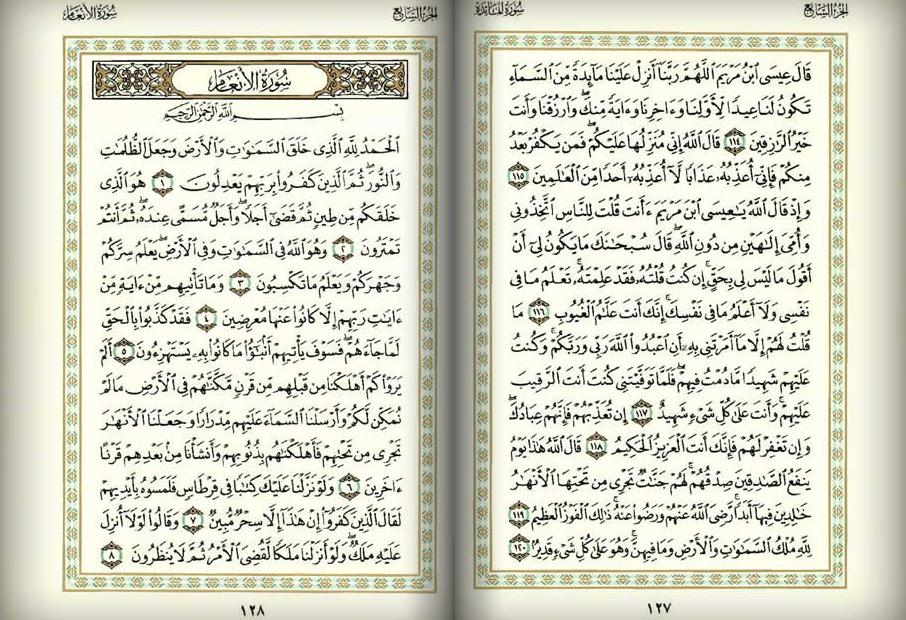 الجزء السابع
سورة المائدة
قَالَ عِيسَى ابْنُ مَرْيَمَ اللَّهُمَّ رَبَّنَا أَنزِلْ عَلَيْنَا مَآئِدَةً مِّنَ السَّمَآءِ
تَكُونُ لَنَا عِيدًا لِّأَوَّلِنَا وَءَاخِرِنَا وَءَايَةً مِّنكَ وَارْزُقْنَا وَأَنتَ
خَيْرُ الرَّٰزِقِينَ ١١٤ قَالَ اللَّهُ إِنِّي مُنَزِّلُهَا عَلَيْكُمْ فَمَن يَكْفُرْ بَعْدُ
مِنكُمْ فَإِنِّىٓ أُعَذِّبُهُۥ عَذَابًا لَّآ أُعَذِّبُهُۥٓ أَحَدًا مِّنَ الْعَٰلَمِينَ ١١٥
وَإِذْ قَالَ اللَّهُ يَٰعِيسَى ابْنَ مَرْيَمَ ءَأَنتَ قُلْتَ لِلنَّاسِ اتَّخِذُونِى
وَأُمِّىَ إِلَٰهَيْنِ مِن دُونِ اللَّهِ قَالَ سُبْحَٰنَكَ مَا يَكُونُ لِىٓ أَنْ
أَقُولَ مَا لَيْسَ لِى بِحَقٍّ إِن كُنتُ قُلْتُهُۥ فَقَدْ عَلِمْتَهُۥ تَعْلَمُ مَا فِى
نَفْسِى وَلَآ أَعْلَمُ مَا فِى نَفْسِكَ إِنَّكَ أَنتَ عَلَّٰمُ الْغُيُوبِ ١١٦ مَا
قُلْتُ لَهُمْ إِلَّا مَآ أَمَرْتَنِى بِهِۦٓ أَنِ اعْبُدُوا۟ اللَّهَ رَبِّى وَرَبَّكُمْ وَكُنتُ
عَلَيْهِمْ شَهِيدًا مَّا دُمْتُ فِيهِمْ فَلَمَّا تَوَفَّيْتَنِى كُنتَ أَنتَ الرَّقِيبَ
عَلَيْهِمْ وَأَنتَ عَلَىٰ كُلِّ شَىْءٍ شَهِيدٌ ١١٧ إِن تُعَذِّبْهُمْ فَإِنَّهُمْ عِبَادُكَ
وَإِن تَغْفِرْ لَهُمْ فَإِنَّكَ أَنتَ الْعَزِيزُ الْحَكِيمُ ١١٨ قَالَ اللَّهُ هَٰذَا يَوْمُ
يَنفَعُ الصَّٰدِقِينَ صِدْقُهُمْ لَهُمْ جَنَّٰتٌ تَجْرِى مِن تَحْتِهَا الْأَنْهَٰرُ
خَٰلِدِينَ فِيهَآ أَبَدًا رَّضِىَ اللَّهُ عَنْهُمْ وَرَضُوا۟ عَنْهُ ذَٰلِكَ الْفَوْزُ الْعَظِيمُ ١١٩
لِلَّهِ مُلْكُ السَّمَٰوَٰتِ وَالْأَرْضِ وَمَا فِيهِنَّ وَهُوَ عَلَىٰ كُلِّ شَىْءٍ قَدِيرٌ ١٢٠
١٢٧
الجزء السابع
سورة الأنعام
سُورَةُ الْأَنْعَامِ
بِسْمِ اللَّهِ الرَّحْمَٰنِ الرَّحِيمِ
الْحَمْدُ لِلَّهِ الَّذِى خَلَقَ السَّمَٰوَٰتِ وَالْأَرْضَ وَجَعَلَ الظُّلُمَٰتِ
وَالنُّورَ ثُمَّ الَّذِينَ كَفَرُوا۟ بِرَبِّهِمْ يَعْدِلُونَ ١ هُوَ الَّذِى
خَلَقَكُم مِّن طِينٍ ثُمَّ قَضَىٰٓ أَجَلًا وَأَجَلٌ مُّسَمًّى عِندَهُۥ ثُمَّ أَنتُمْ
تَمْتَرُونَ ٢ وَهُوَ اللَّهُ فِى السَّمَٰوَٰتِ وَفِى الْأَرْضِ يَعْلَمُ سِرَّكُمْ
وَجَهْرَكُمْ وَيَعْلَمُ مَا تَكْسِبُونَ ٣ وَمَا تَأْتِيهِم مِّنْ ءَايَةٍ مِّنْ
ءَايَٰتِ رَبِّهِمْ إِلَّا كَانُوا۟ عَنْهَا مُعْرِضِينَ ٤ فَقَدْ كَذَّبُوا۟ بِالْحَقِّ
لَمَّا جَآءَهُمْ فَسَوْفَ يَأْتِيهِمْ أَنۢبَٰٓؤُا۟ مَا كَانُوا۟ بِهِۦ يَسْتَهْزِءُونَ ٥ أَلَمْ
يَرَوْا۟ كَمْ أَهْلَكْنَا مِن قَبْلِهِم مِّن قَرْنٍ مَّكَّنَّٰهُمْ فِى الْأَرْضِ مَا لَمْ
نُمَكِّن لَّكُمْ وَأَرْسَلْنَا السَّمَآءَ عَلَيْهِم مِّدْرَارًا وَجَعَلْنَا الْأَنْهَٰرَ
تَجْرِى مِن تَحْتِهِمْ فَأَهْلَكْنَٰهُم بِذُنُوبِهِمْ وَأَنشَأْنَا مِنۢ بَعْدِهِمْ قَرْنًا
ءَاخَرِينَ ٦ وَلَوْ نَزَّلْنَا عَلَيْكَ كِتَٰبًا فِى قِرْطَاسٍ فَلَمَسُوهُ بِأَيْدِيهِمْ
لَقَالَ الَّذِينَ كَفَرُوٓا۟ إِنْ هَٰذَآ إِلَّا سِحْرٌ مُّبِينٌ ٧ وَقَالُوا۟ لَوْلَآ أُنزِلَ
عَلَيْهِ مَلَكٌ وَلَوْ أَنزَلْنَا مَلَكًا لَّقُضِىَ الْأَمْرُ ثُمَّ لَا يُنظَرُونَ ٨
١٢٨